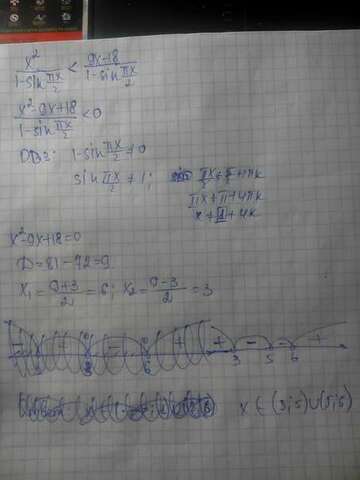 x²/(1-sin πx/2) < (9x-18)/(1-sin πx/2)
(x²-9x+18)/(1-sin πx/2) < 0
ОВЗ: 1-sin πx/2 ≠ 0
sin πx/2 ≠ 1; πx/2 ≠ π/2+2πk
πx ≠ π+4πk
x ≠ 1+4k
x²-9x+18=0
D=81-72=9
x₁=(9+3)/2=6; x₂=(9-3)/2=3
+ - - +
3 5 6
x ∈ (3;5)∪(5;6)